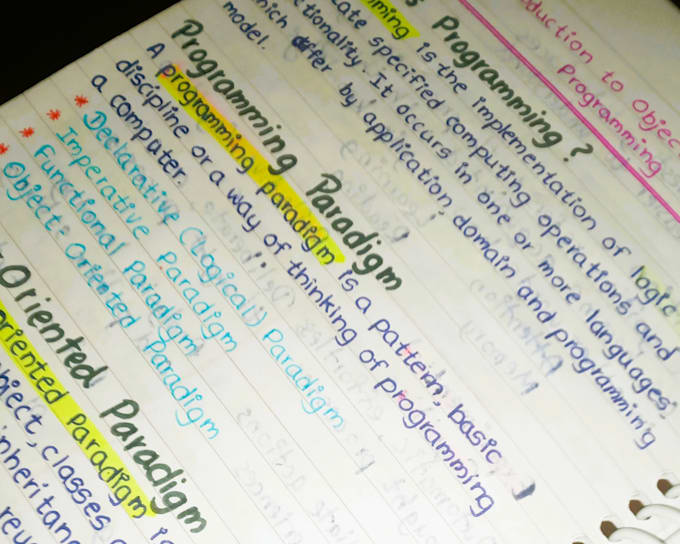 duction to Objec
Programming
s Programming?
ming is the implementation of logic
ate specified computing operations and
tionality. It occurs in one or more languages,
hich differ by application, domain and programming
model.
Programming Paradigm
A programming paradigm is a pattern, basic
discipline or a way of thinking of programming
a computer.
* Declarative (Logical) Paradigm
* Imperative Paradigm
* Functional Paradigm
* Object Oriented Paradigm
Oriented Paradigm
oriented paradigm is
bject, classes
inheritan
reu